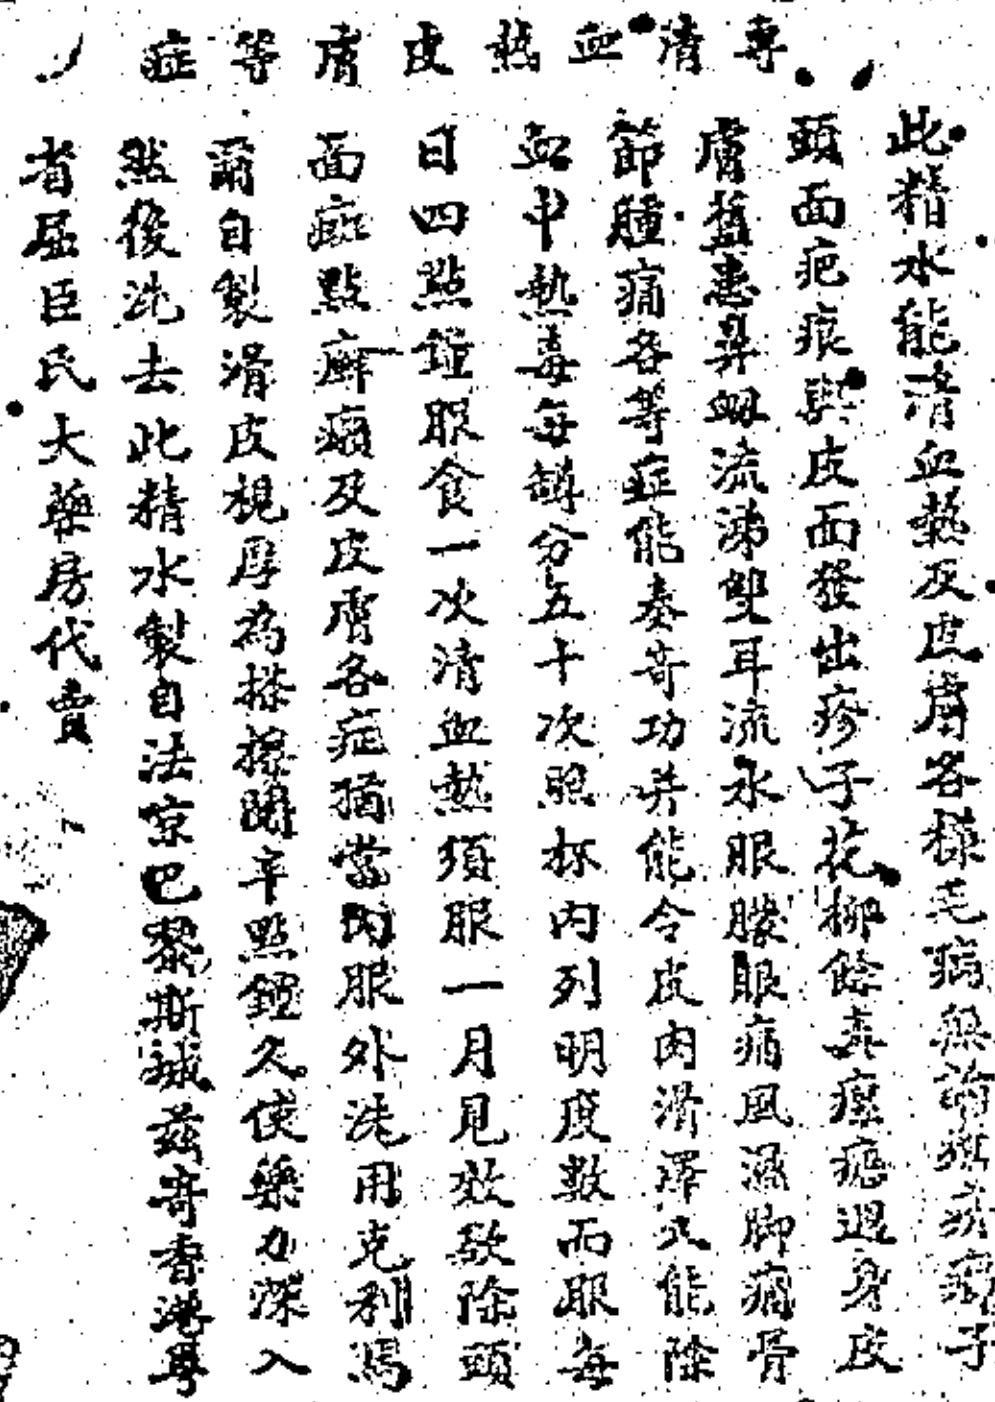 專清血熱皮膚等症
此精水能清血熱及皮膚各樣毛病無論癬疥瘡子
頭面疤痕與皮面發出疹子花柳餘毒瘰疬週身皮
膚藍患鼻衂流涕雙耳流水眼矇眼痛風濕脚痛骨
節腫痛各等症能奏奇功并能令皮肉滑澤又能除
血中熱毒每罇分五十次照杯內列明度數而服每
日四點鐘服食一次清血熱須服一月見效欲除頭
面斑點癬癩及皮膚各症猶當內服外洗用克利馬
爾自製滑皮梘厚為搽擦閱半點鐘久使藥力深入
然後洗去此精水製自法京巴黎斯城茲寄香港粵
省屈臣氏大藥房代賣